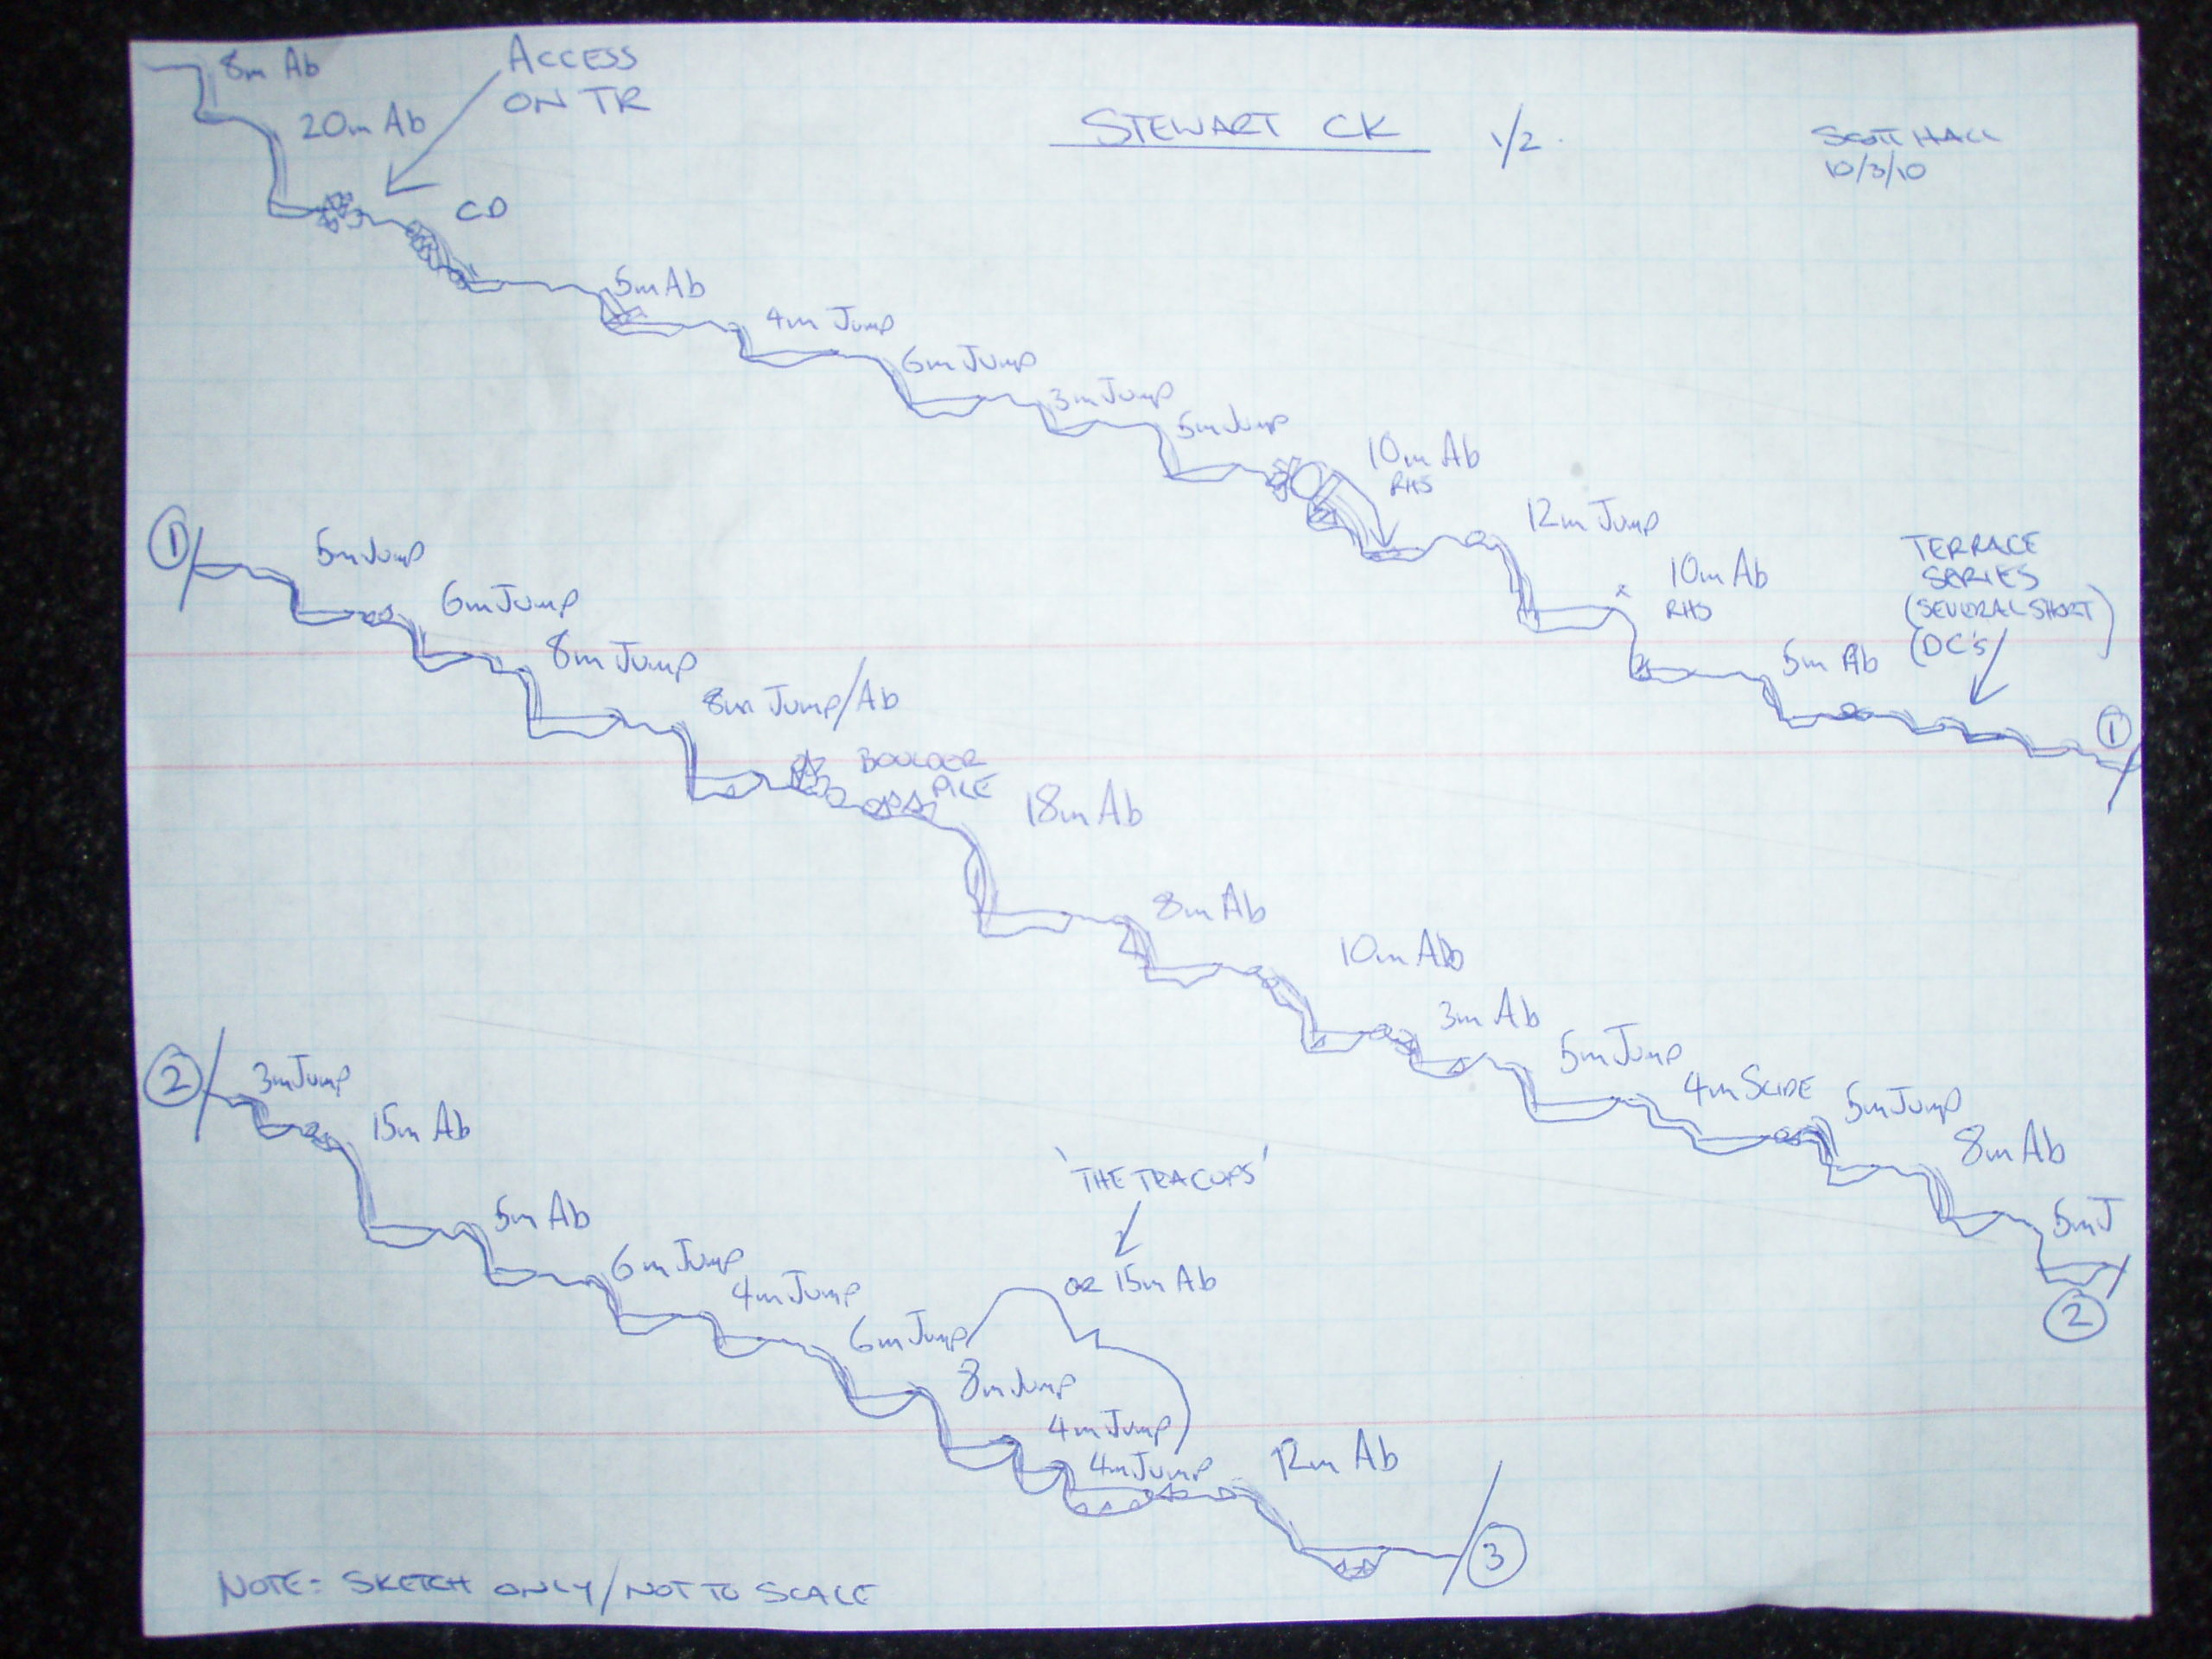 8m Ab
ACCESS
ON TR
20m Ab
STEWART CK 1/2.
SCOTT HALL
10/3/10
CD
5m Ab
4m Jump
6m Jump
3m Jump
5m Jump
10m Ab
RHS
12m Jump
x 10m Ab
RHS
TERRACE
SERIES
(SEVERAL SHORT)
(DC's)
5m Ab
1
1
5m Jump
6m Jump
8m Jump
8m Jump/Ab
BOULDER
PILE
18m Ab
8m Ab
10m Ab
3m Ab
5m Jump
4m SLIDE
5m Jump
8m Ab
5m J
2
2
3m Jump
15m Ab
5m Ab
6m Jump
4m Jump
6m Jump
'THE TEACUPS'
OR 15m Ab
8m Jump
4m Jump
4m Jump
12m Ab
3
NOTE: SKETCH ONLY/NOT TO SCALE